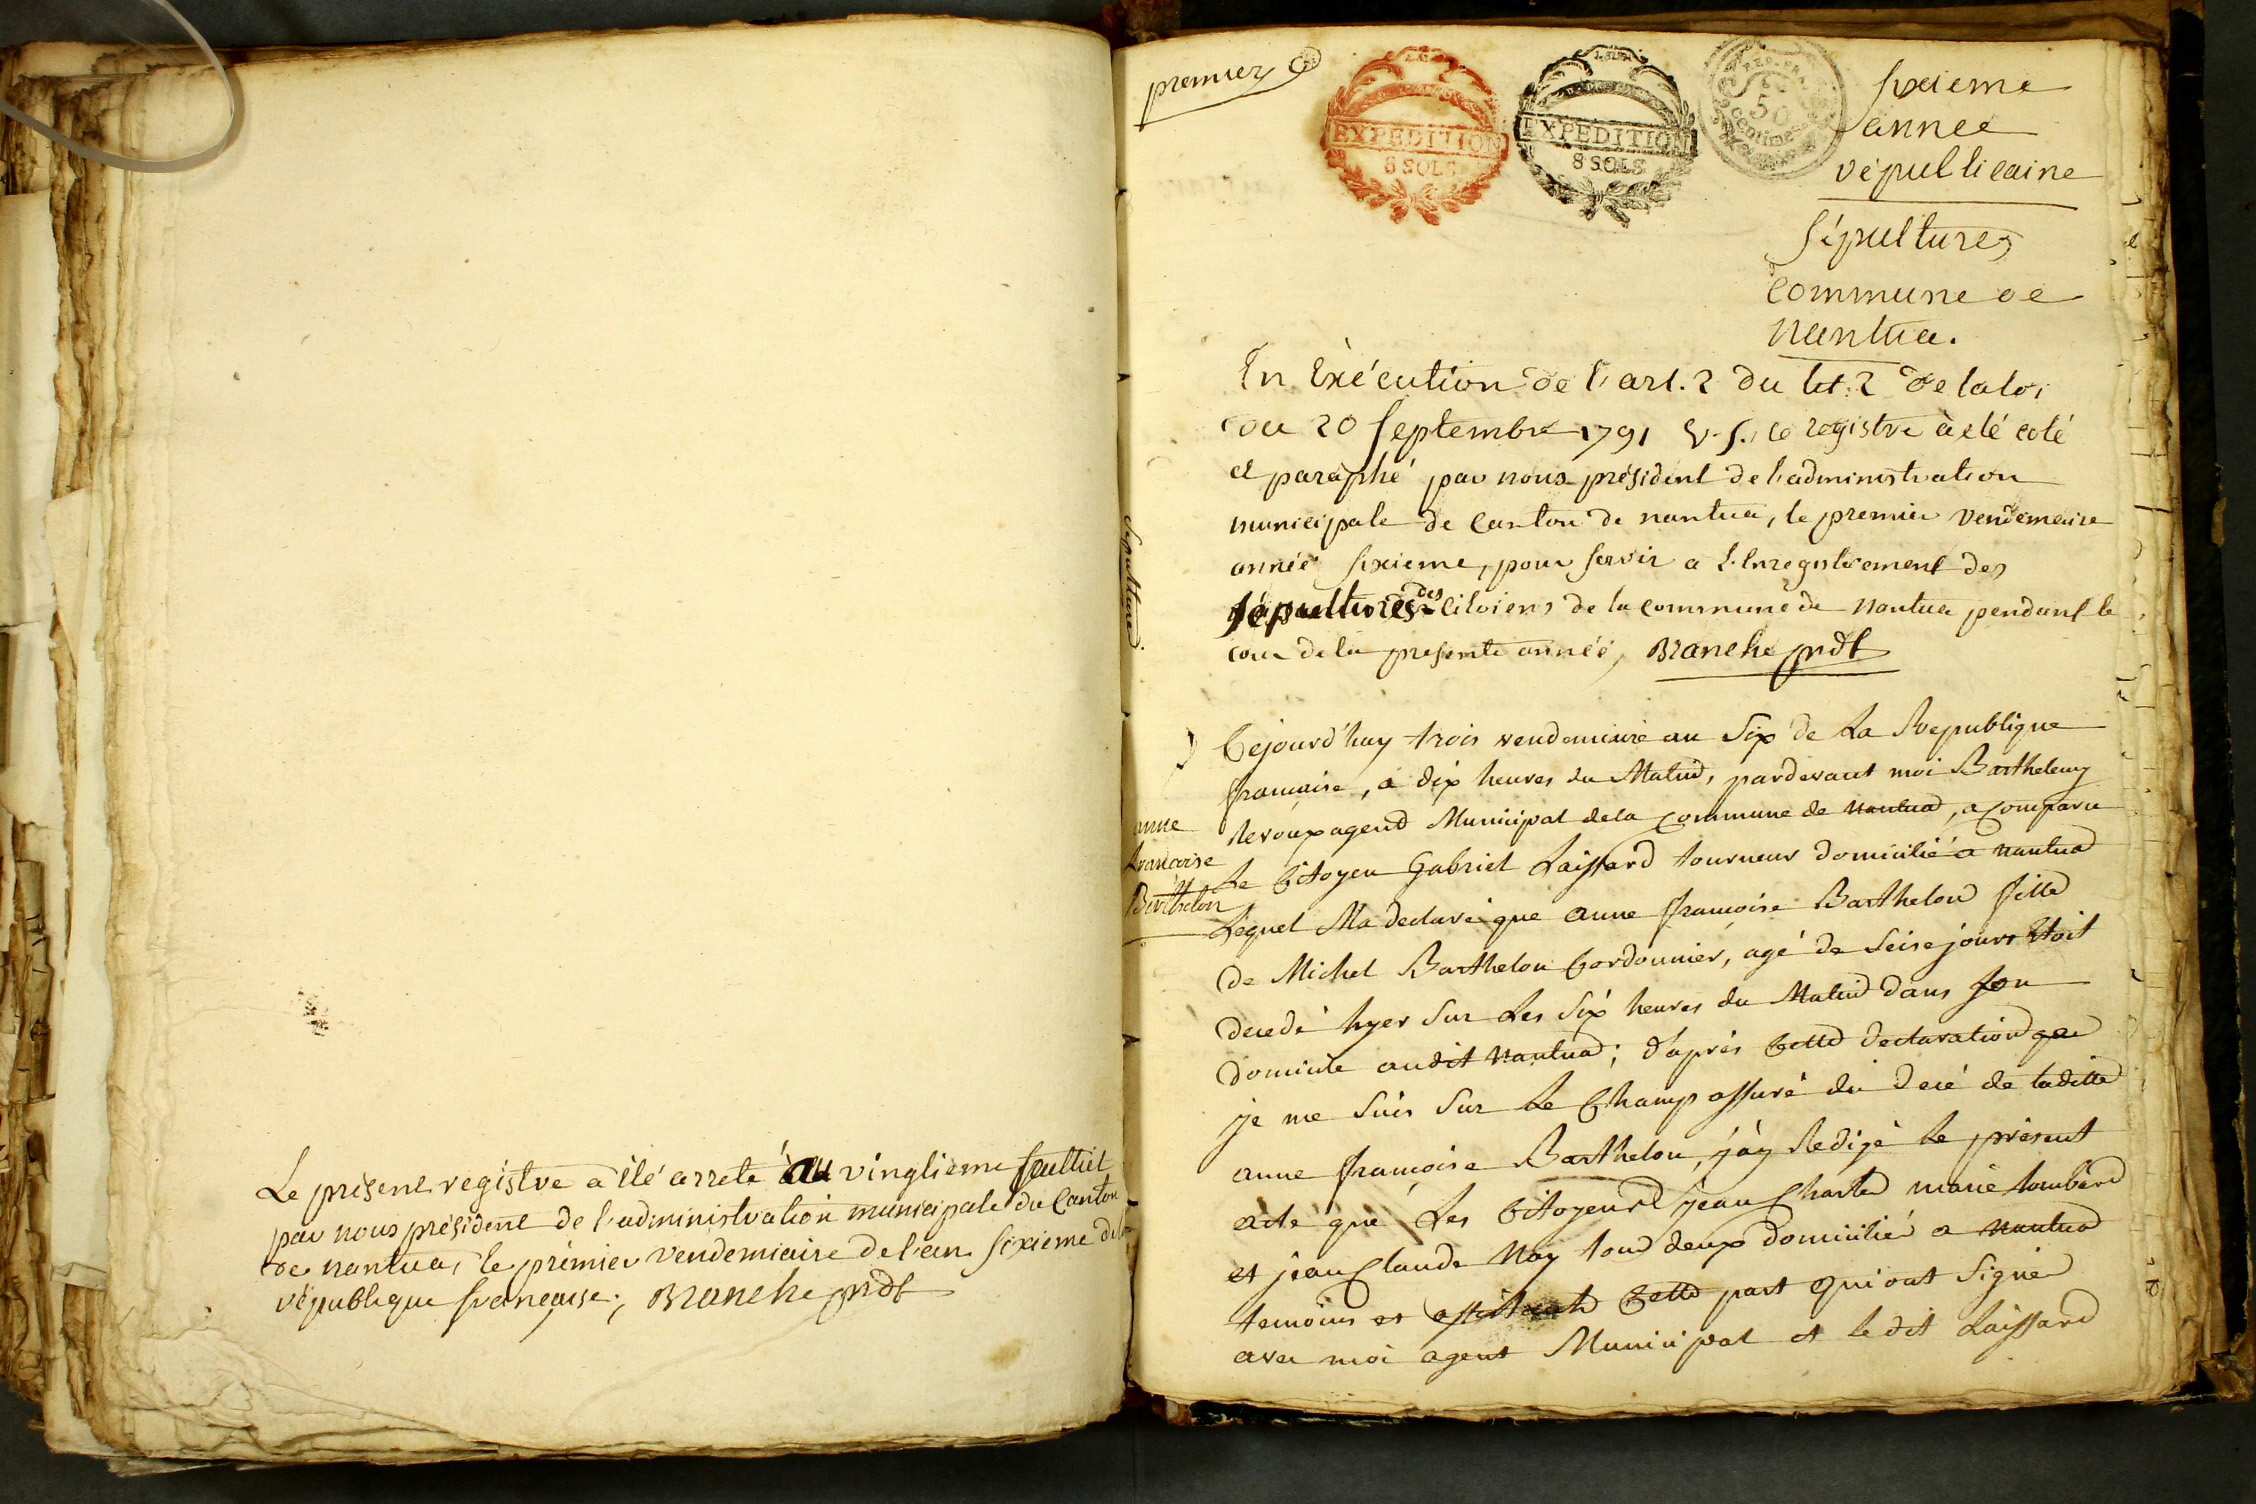 Le présent registre a été arreté au vingtieme feulliet
par nous président de l'administration municipale du Canton
de nantua, le premier vendemiaire de l'an sixieme de la
république francaise; Branche prdt
premier
EXPEDITION
8 SOLS
EXPEDITION
8 SOLS
REP. FRA
50
centimes
sixieme
annee
républicaine
sépultures
commune de
nantua.
En Exécution de l'art. 2 du tit. 2 de la loi
du 20 septembre 1791 V.S. ce registre à été coté
et paraphé par nous président de l'administration
municipale de canton de nantua, le premier vendemeire
année sixieme, pour servir a l'Enregistrement des
sépultures des citoiens de la commune de nantua pendant le
cour de la presente année, Branche prdt
sepulture
Cejourd'huy trois vendemiaire an Six de La Republique
francaise, a dix heures du Matin, pardevant moi Barthelemy
anne
francoise
Berthelon
agent Municipal de la commune de nantua, a comparu
Le Citoyen Gabriel Laissard tourneur domicilié a nantua
Lequel Ma declaré que anne francoise Barthelon fille
de Michel Barthelon Cordonnier, agé de seise jours Etoit
decedé hyer sur Les Six heures du Matin dans son
domicile audit nantua; d'aprés Cette declaration que
je me suis sur Le Champ assuré du decé de ladite
anne francoise Barthelon, j'ay Redigé Le présent
acte que Les Citoyens jean Charle marie lombard
et jean Claude Nay tous deux domicilié a nantua
temoins et Cette part qui ont Signé
avec moi agent Municipal et le dit Laissard